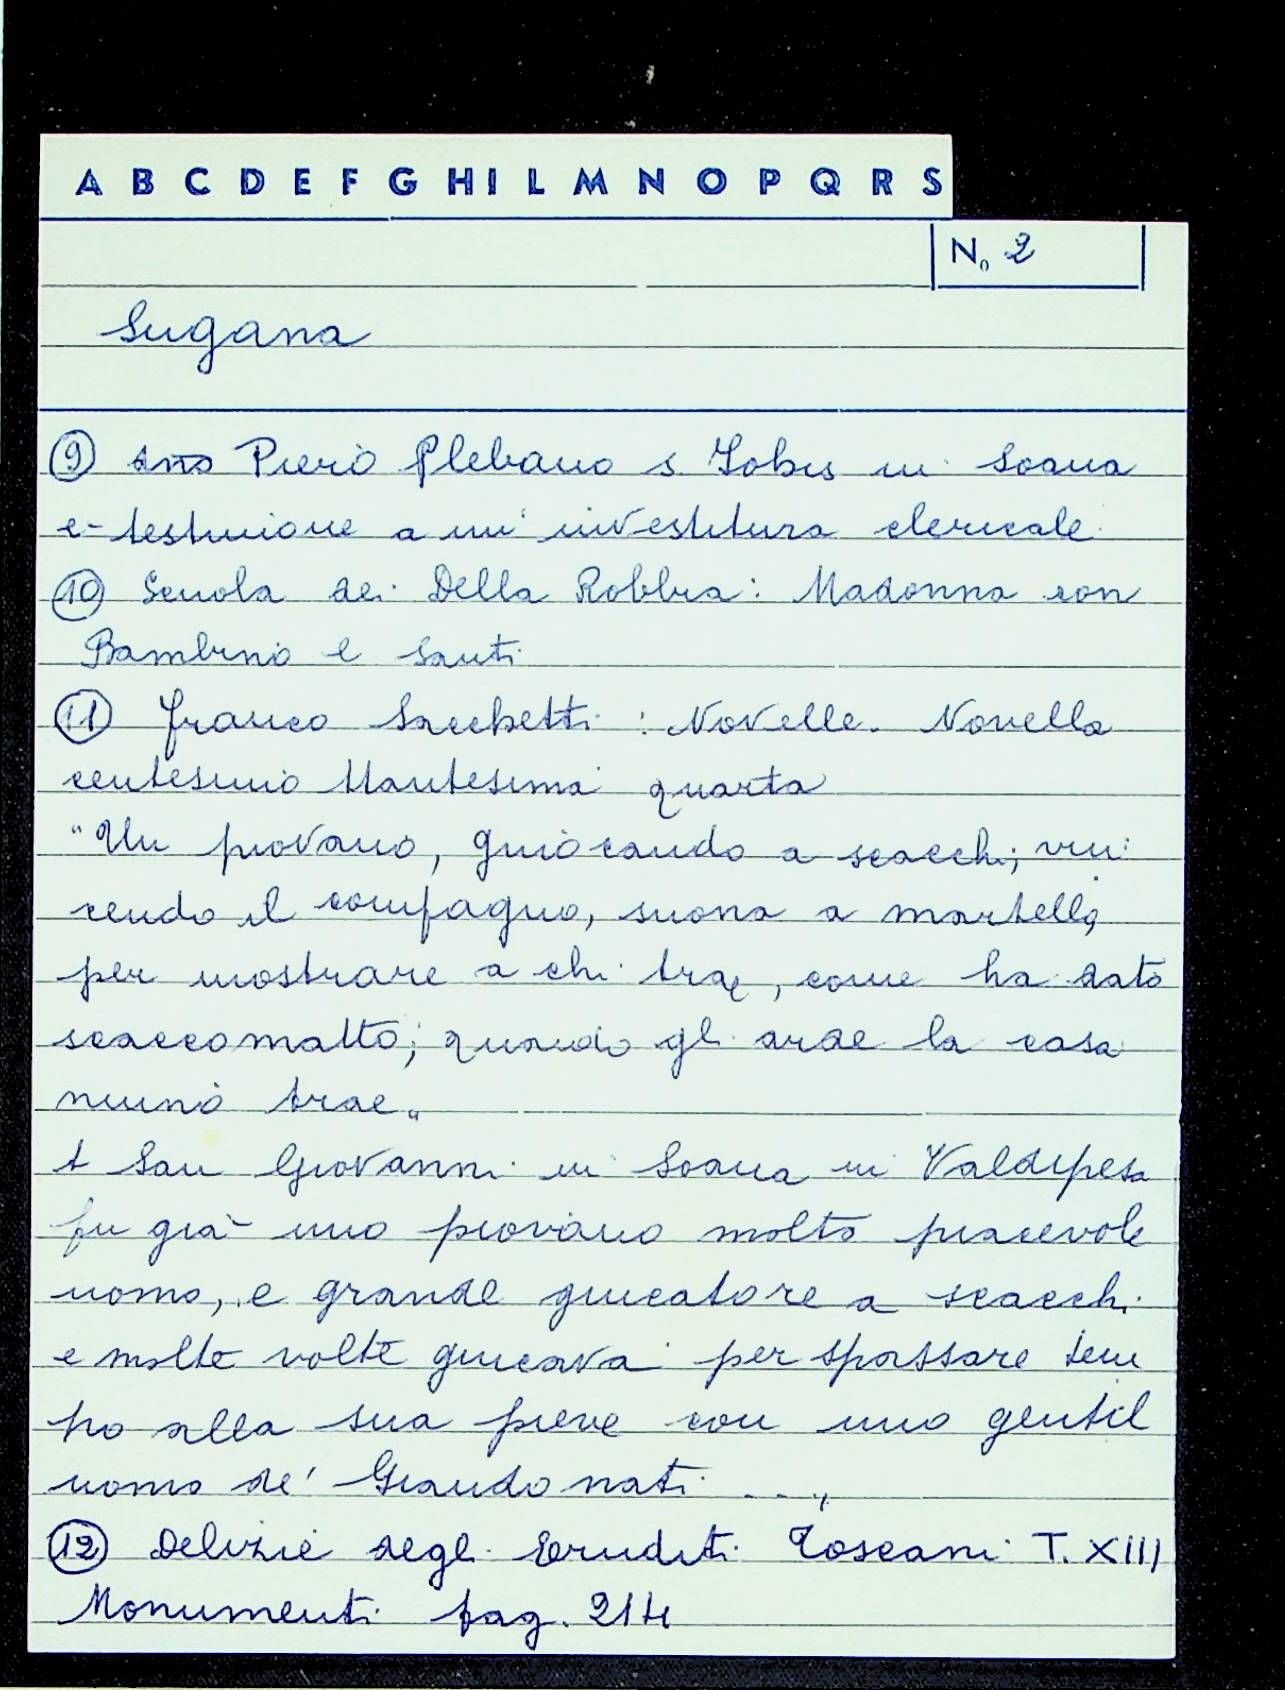 A B C D E F G H I L M N O P Q R S
N. 2
Sugana
⑨ Piero Plebano s Johis in Soana
e- testimone a un' investitura clericale
⑩ Scuola dei Della Robbia: Madonna con
Bambino e Santi
⑪ Franco Sacchetti: Novelle. Novella
centesimo ttantesima quarta
"Un piovano, giuocando a scacchi, vin
cendo il compagno, suona a martello,
per mostrare a chi trae, come ha dato
scaccomatto; quando gli arde la casa
niuno trae"
A San Giovanni in Soana in Valdipesa
fu già uno piovano molto piacevole
uomo, e grande giucatore a scacchi
e molte volte giucava per spassare tem
po alla sua pieve con uno gentil
uomo de' Giandonati ..."
⑫ Delizie degli Eruditi Toscani T. XIII
Monumenti pag. 214